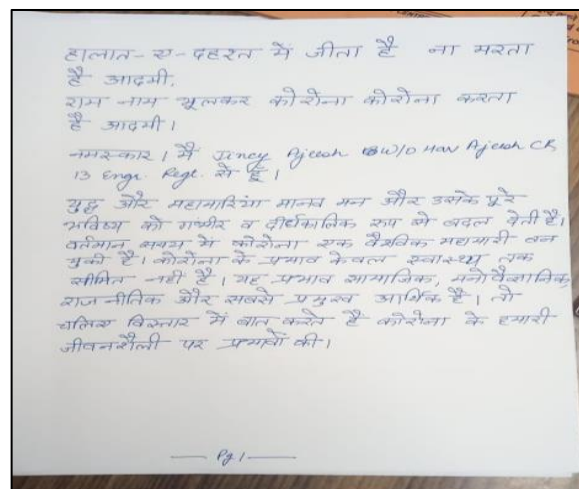 हालात-ए-दहशत में जीता है ना मरता
है आदमी,
राम नाम भूलकर कोरोना कोरोना करता
है आदमी।
नमस्कार। मैं Jincy Ajeesh W/O HAV Ajeesh CR,
13 Engr. Regt. से हूँ।
युद्ध और महामारियां मानव मन और उसके पूरे
भविष्य को गम्भीर व दीर्घकालिक रूप से बदल देती है।
वर्तमान समय में कोरोना एक वैश्विक महामारी बन
चुकी है। कोरोना के प्रभाव केवल स्वास्थ्य तक
सीमित नहीं है। यह प्रभाव सामाजिक, मनोवैज्ञानिक,
राजनीतिक और सबसे प्रमुख आर्थिक है। तो
चलिए विस्तार में बात करते है कोरोना के हमारी
जीवनशैली पर प्रभावों की।
Pg 1